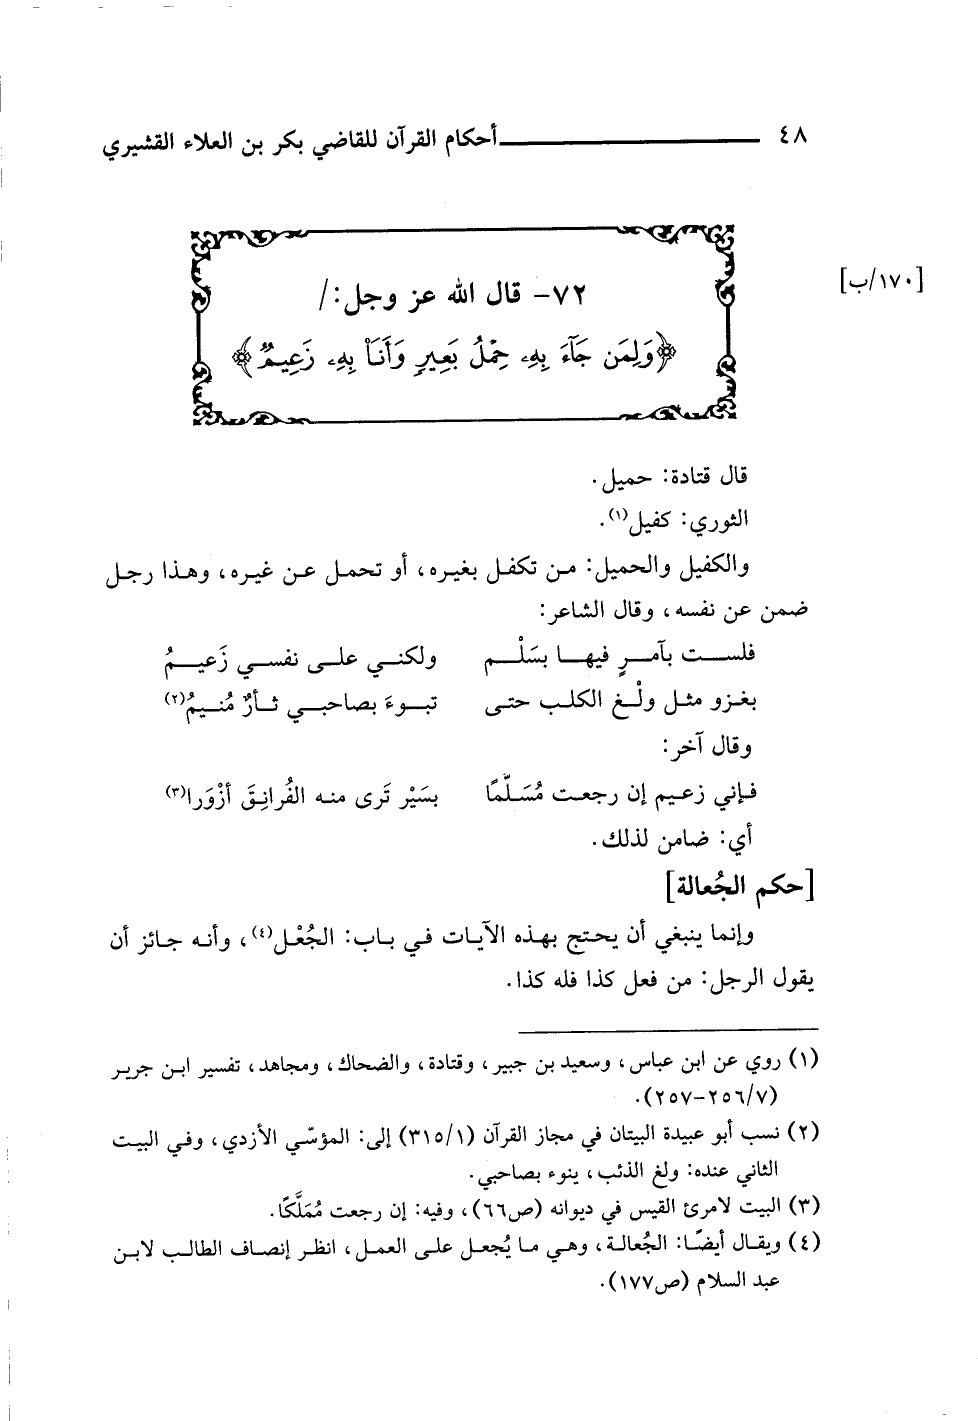 ٤٨ أحكام القرآن للقاضي بكر بن العلاء القشيري
[١٧٠/ب]
٧٢- قال الله عز وجل:/
﴿وَلِمَن جَآءَ بِهِۦ حِمْلُ بَعِيرٍ وَأَنَا۠ بِهِۦ زَعِيمٌ﴾
قال قتادة: حميل.
الثوري: كفيل(١).
والكفيل والحميل: من تكفل بغيره، أو تحمل عن غيره، وهذا رجل
ضمن عن نفسه، وقال الشاعر:
فلست بآمرٍ فيها بسَلْم ولكني على نفسي زَعيمُ
بغزو مثل ولْغ الكلب حتى تبوءَ بصاحبي ثأرٌ مُنيمُ(٢)
وقال آخر:
فإني زعيم إن رجعت مُسَلَّمًا بسَيْر تَرى منه الفُرانِقَ أزْوَرا(٣)
أي: ضامن لذلك.
[حكم الجُعالة]
وإنما ينبغي أن يحتج بهذه الآيات في باب: الجُعْل(٤)، وأنه جائز أن
يقول الرجل: من فعل كذا فله كذا.
(١) روي عن ابن عباس، وسعيد بن جبير، وقتادة، والضحاك، ومجاهد، تفسير ابن جرير
(٧/٢٥٦-٢٥٧).
(٢) نسب أبو عبيدة البيتان في مجاز القرآن (١/٣١٥) إلى: المؤسّي الأزدي، وفي البيت
الثاني عنده: ولغ الذئب، ينوء بصاحبي.
(٣) البيت لامرئ القيس في ديوانه (ص٦٦)، وفيه: إن رجعت مُمَلَّكًا.
(٤) ويقال أيضًا: الجُعالة، وهي ما يُجعل على العمل، انظر إنصاف الطالب لابن
عبد السلام (ص١٧٧).